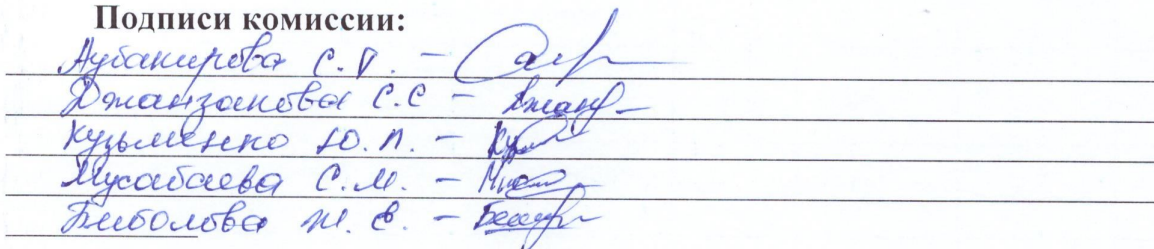 Подписи комиссии:
Аубакирова С. Т. –
Джанзакова С.С –
Кузьменко Ю. П. –
Мусабаева С. М. –
Биболова Ж. Е. –